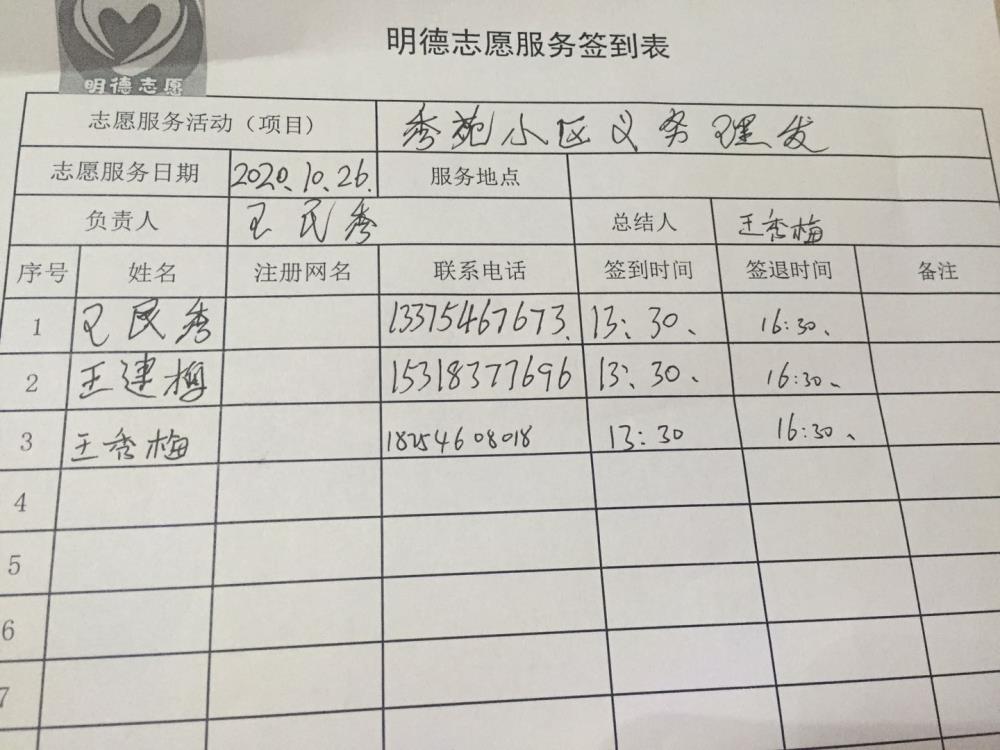 明德志愿服务签到表
明德志愿
志愿服务活动（项目） 秀苑小区义务理发
志愿服务日期 2020.10.26. 服务地点
负责人 王民秀 总结人 王秀梅
序号 姓名 注册网名 联系电话 签到时间 签退时间 备注
1 王民秀 13375467673. 13:30、 16:30、
2 王建梅 15318377696 13:30、 16:30、
3 王秀梅 18254608018 13:30 16:30、
4
5
6
7